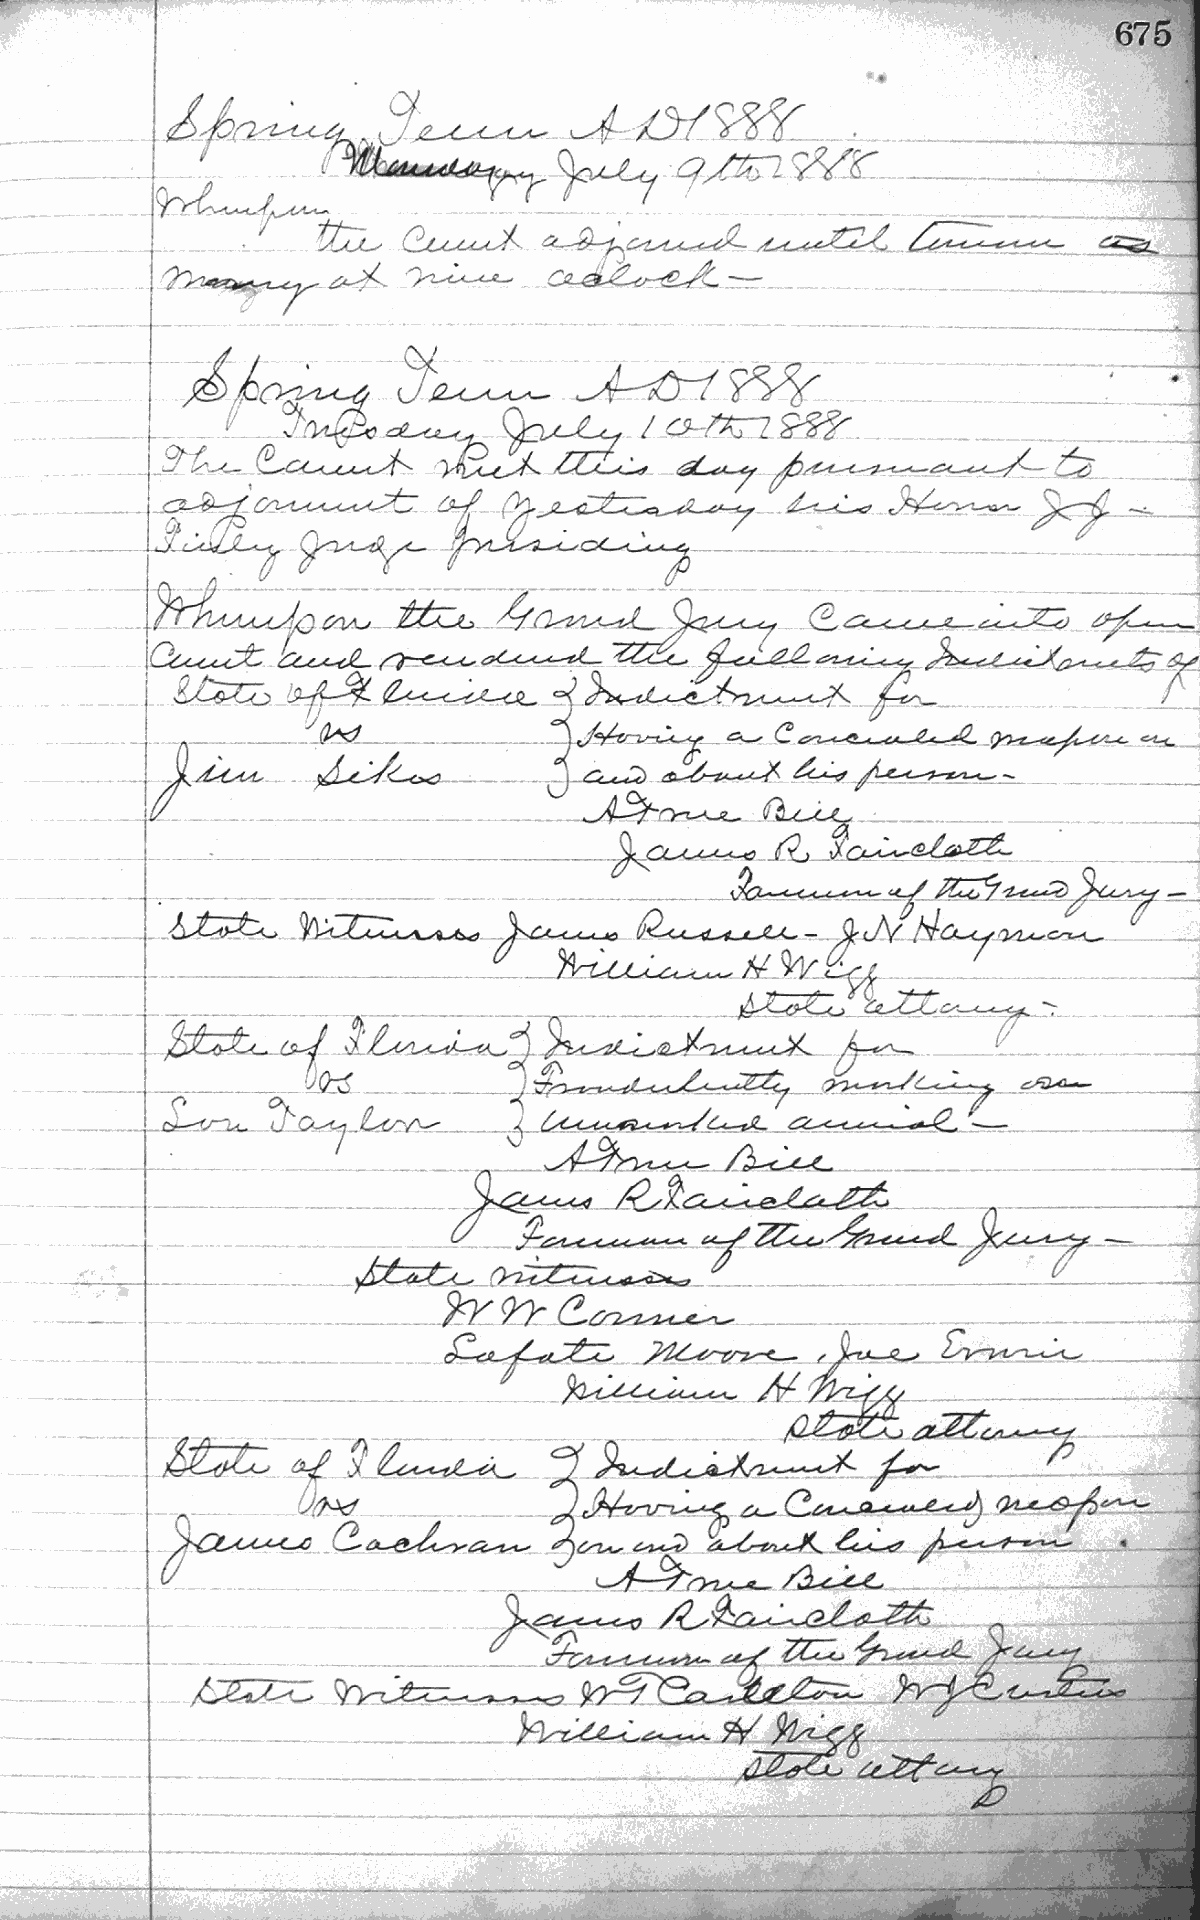 675
Spring Term A D 1888
Monday July 9th 1888
Whereupon
the Court adjorned until tomorrow
morning at nine oclock —
Spring Term A D 1888
Tuesday July 10th 1888
The Court met this day pursuant to
adjornment of yesterday his Honor J J –
Finley Judge presiding
Whereupon the Grand Jury Came into open
Court and rendered the following Indictments of
State of Florida } Indictment for
vs } Having a Concealed weapon on
Jim Sikes } and about his person –
A True Bill
James R Faircloth
Forman of the Grand Jury –
State Witnesses James Russell – J N Hayman
William H Wigg
State attorney –
State of Florida } Indictment for
vs } Fraudulently marking an
Lou Taylor } unmarked animal –
A True Bill
James R Faircloth
Forman of the Grand Jury –
State witnesses
W W Conner
Lafate Moore , Joe Erwin
William H Wigg
State attorney
State of Florida } Indictment for
vs } Having a Concealed weapon
James Cochran } on and about his person
A True Bill
James R Faircloth
Forman of the Grand Jury
State Witnesses W T Carlton W J Curtis
William H Wigg
State attorny